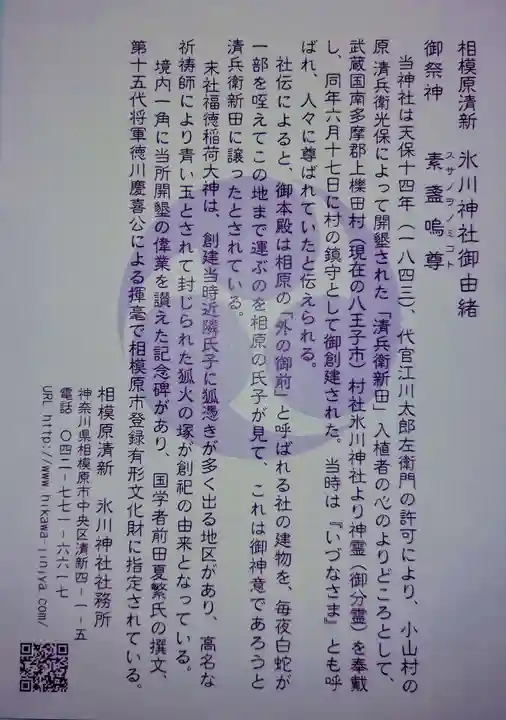 相模原清新　氷川神社御由緒
御祭神　素盞嗚尊
スサノヲノミコト
当神社は天保十四年（一八四三）、代官江川太郎左衛門の許可により、小山村の
原 清兵衛光保によって開墾された「清兵衛新田」入植者の心のよりどころとして、
武蔵国南多摩郡上櫟田村（現在の八王子市）村社氷川神社より神霊（御分霊）を奉戴
し、同年六月十七日に村の鎮守として御創建された。当時は『いづなさま』とも呼
ばれ、人々に尊ばれていたと伝えられる。
社伝によると、御本殿は相原の「外の御前」と呼ばれる社の建物を、毎夜白蛇が
一部を咥えてこの地まで運ぶのを相原の氏子が見て、これは御神意であろうと
清兵衛新田に譲ったとされている。
末社福徳稲荷大神は、創建当時近隣氏子に狐憑きが多く出る地区があり、高名な
祈祷師により青い玉とされて封じられた狐火の塚が創祀の由来となっている。
境内一角に当所開墾の偉業を讃えた記念碑があり、国学者前田夏繁氏の撰文、
第十五代将軍徳川慶喜公による揮毫で相模原市登録有形文化財に指定されている。
相模原清新　氷川神社社務所
神奈川県相模原市中央区清新四-一-五
電話　〇四二-七七一-六六一七
URL http://www.hikawa-jinjya.com/